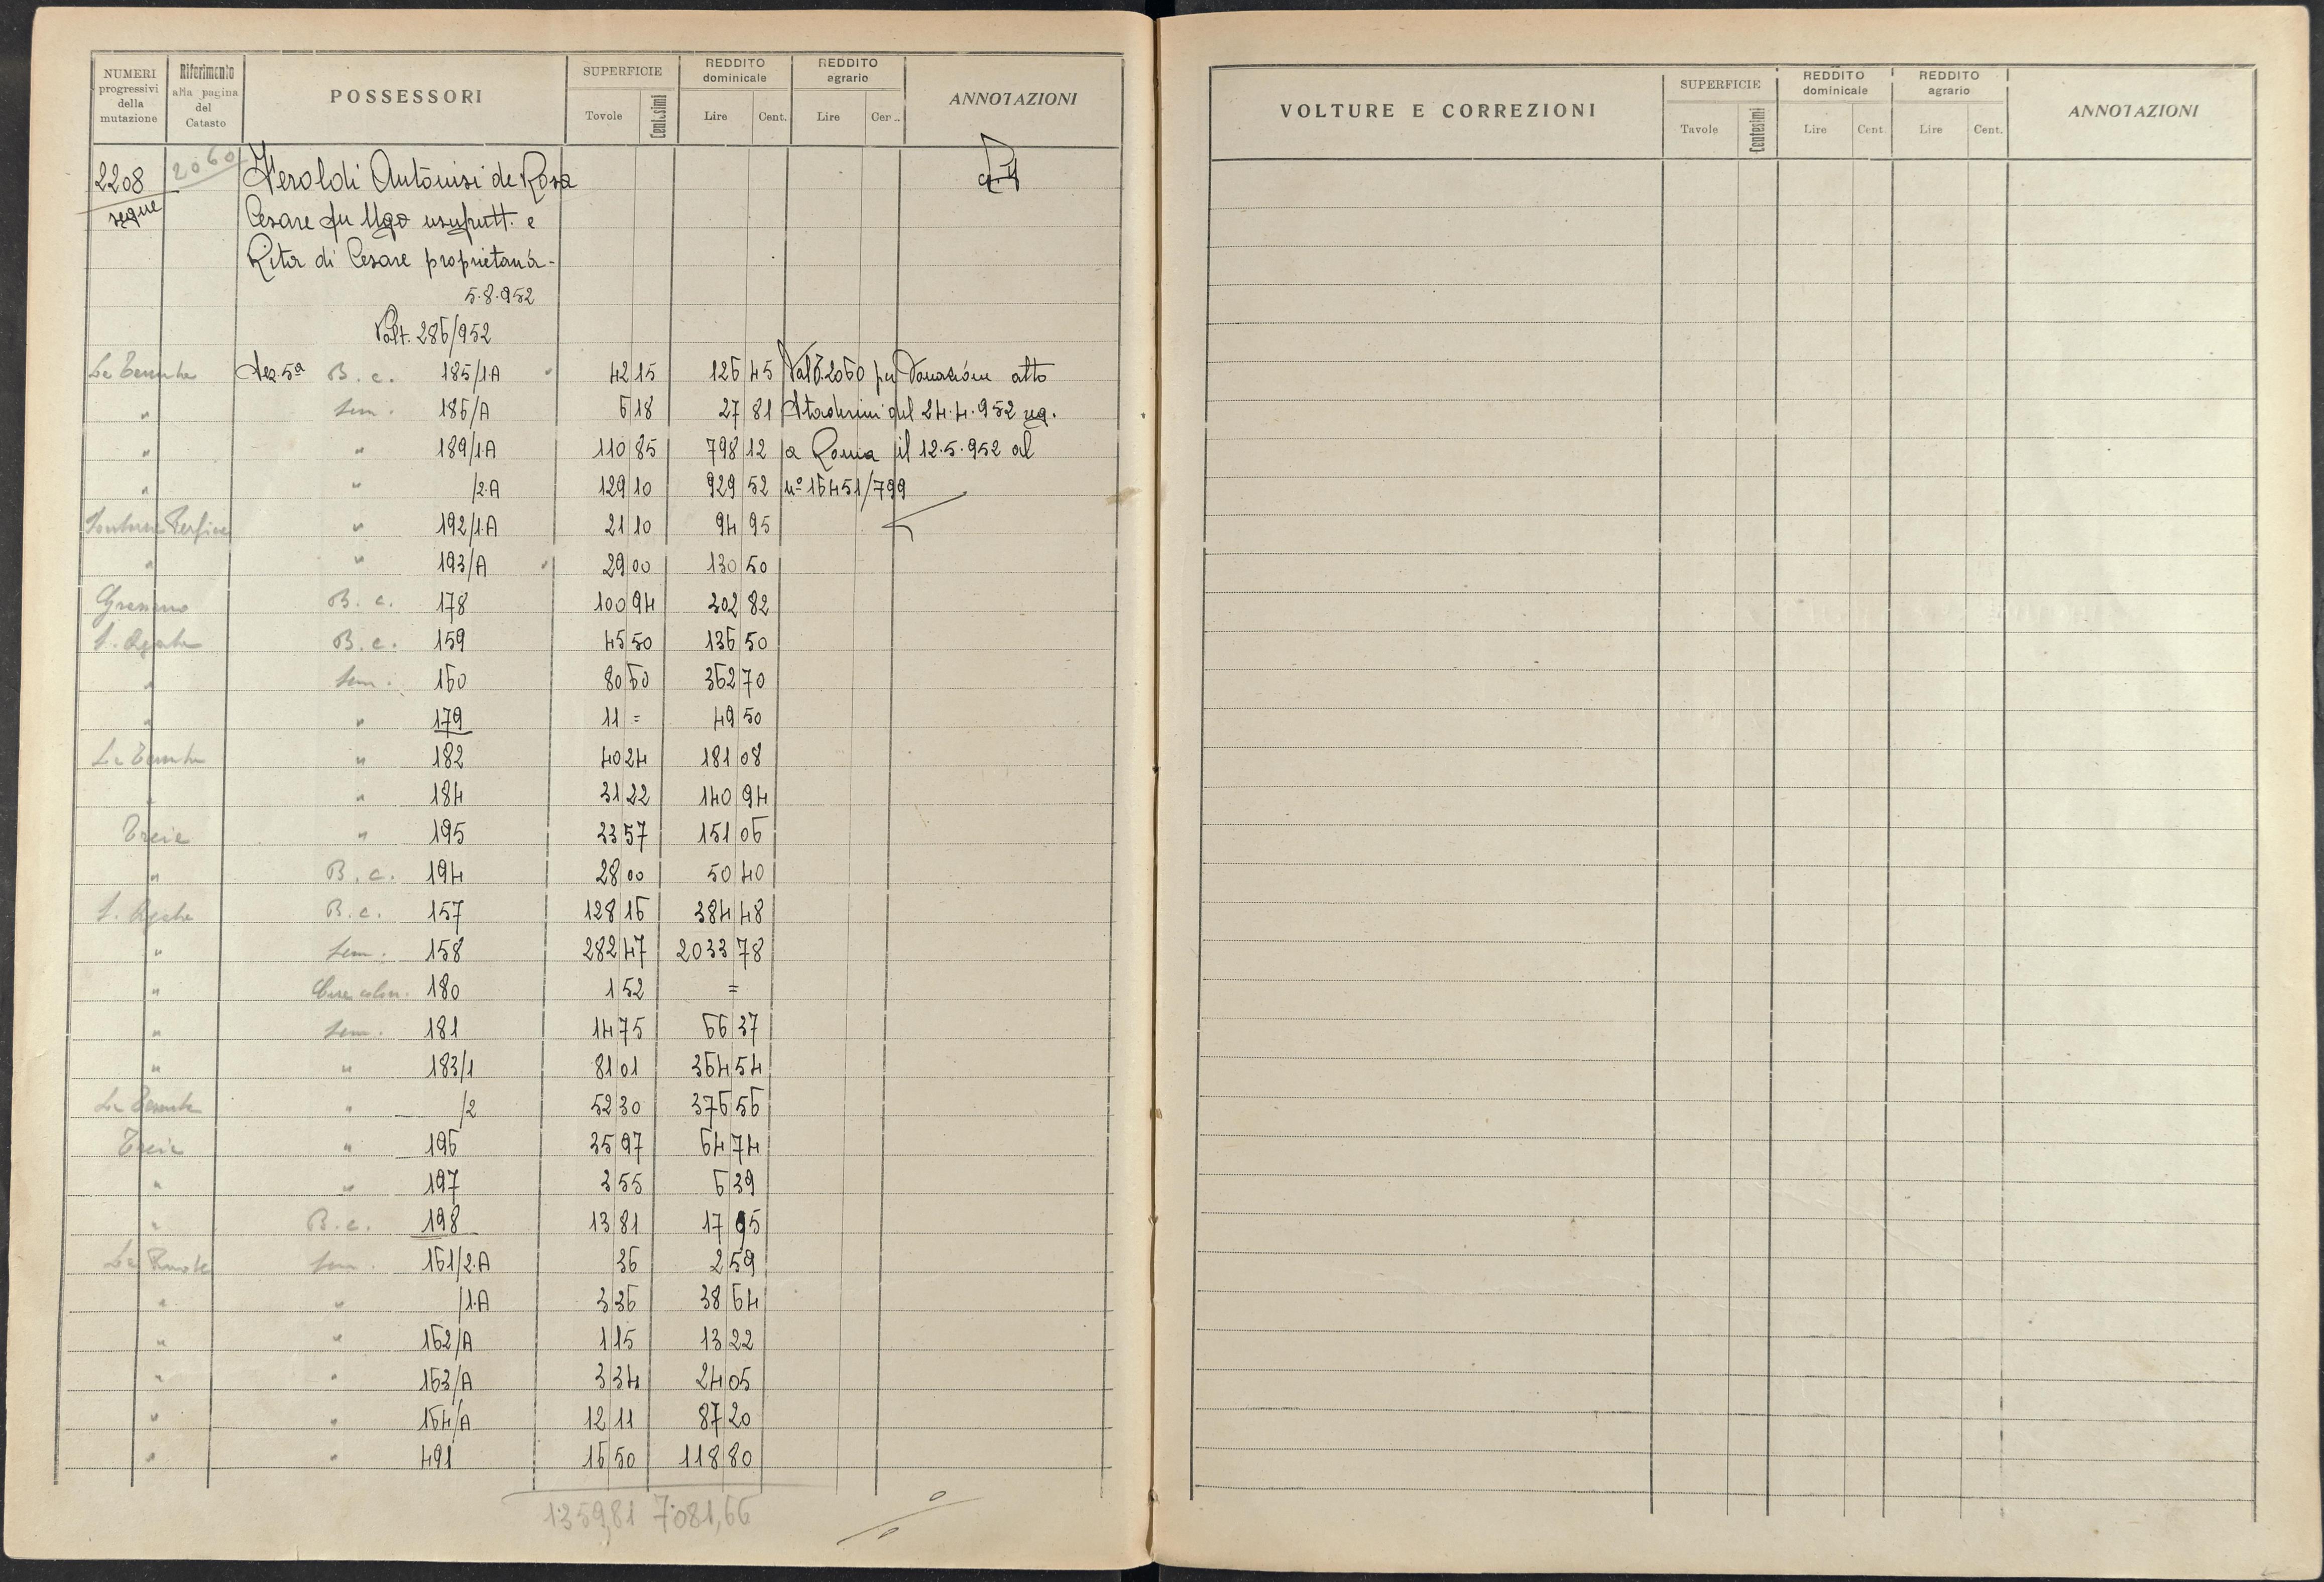 NUMERI progressivi della mutazione | Riferimento alla pagina del Catasto | POSSESSORI | SUPERFICIE Tavole Centesimi | REDDITO dominicale Lire Cent. | REDDITO agrario Lire Cent. | ANNOTAZIONI
2208 2060 Veroldi Antonisi de Rosa
segue Cesare fu Ugo usufrutt. e
Rita di Cesare proprietaria-
5.8.952
Volt. 286/952
Sez. 5ª B. c. 185/1A 42 15 126 45 Dal 2060 per Donazione atto
" Sem. 186/A 6 18 27 81 del 24.4.952 reg.
" " 189/1.A 110 85 798 12 a Roma il 12.5.952 al
" " /2.A 129 10 929 52 nº 16451/799
" 192/1.A 21 10 94 95
" " 193/A 29 00 130 50
B. c. 178 100 94 302 82
S. Agata B. c. 159 45 50 136 50
" Sem. 160 80 60 362 70
" " 179 11 = 49 50
" 182 40 24 181 08
" " 184 31 22 140 94
Treia " 195 33 57 151 06
" B. c. 194 28 00 50 40
S. Agata B. c. 157 128 16 384 48
" Sem. 158 282 47 2033 78
" Casa colon. 180 1 52 =
" Sem. 181 14 75 66 37
" " 183/1 81 01 364 54
" /2 52 30 376 56
Treia " 196 35 97 64 74
" " 197 3 55 6 39
" B. c. 198 13 81 17 95
Sem. 161/2.A 36 2 59
" " /1.A 3 36 38 64
" " 162/A 1 15 13 22
" " 163/A 3 34 24 05
" " 164/A 12 11 87 20
" " 491 16 50 118 80
1359,81 7081,66
VOLTURE E CORREZIONI | SUPERFICIE Tavole Centesimi | REDDITO dominicale Lire Cent. | REDDITO agrario Lire Cent. | ANNOTAZIONI